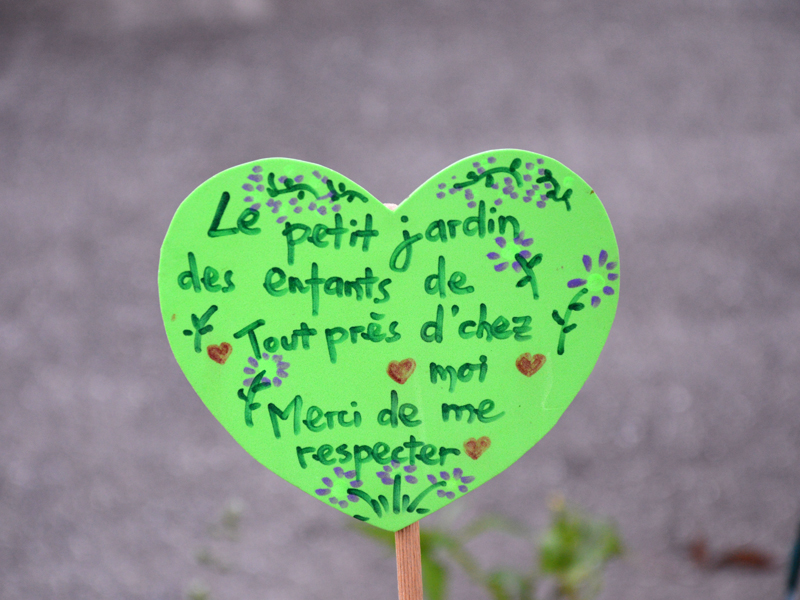 Le petit jardin
des enfants de
Tout près d'chez
moi
Merci de me
respecter